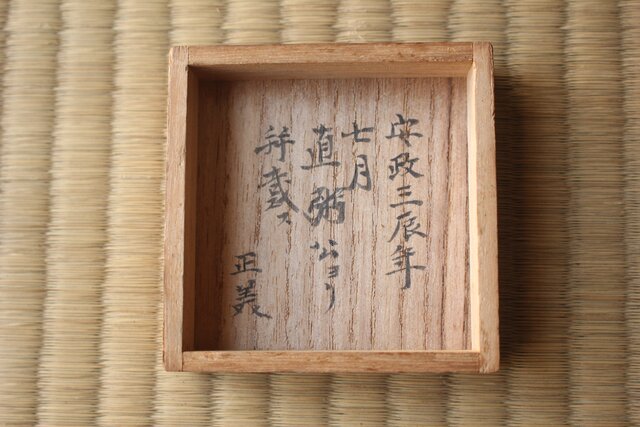 安政三辰年
七月
直弼公ヨリ
拝戴ス
正美